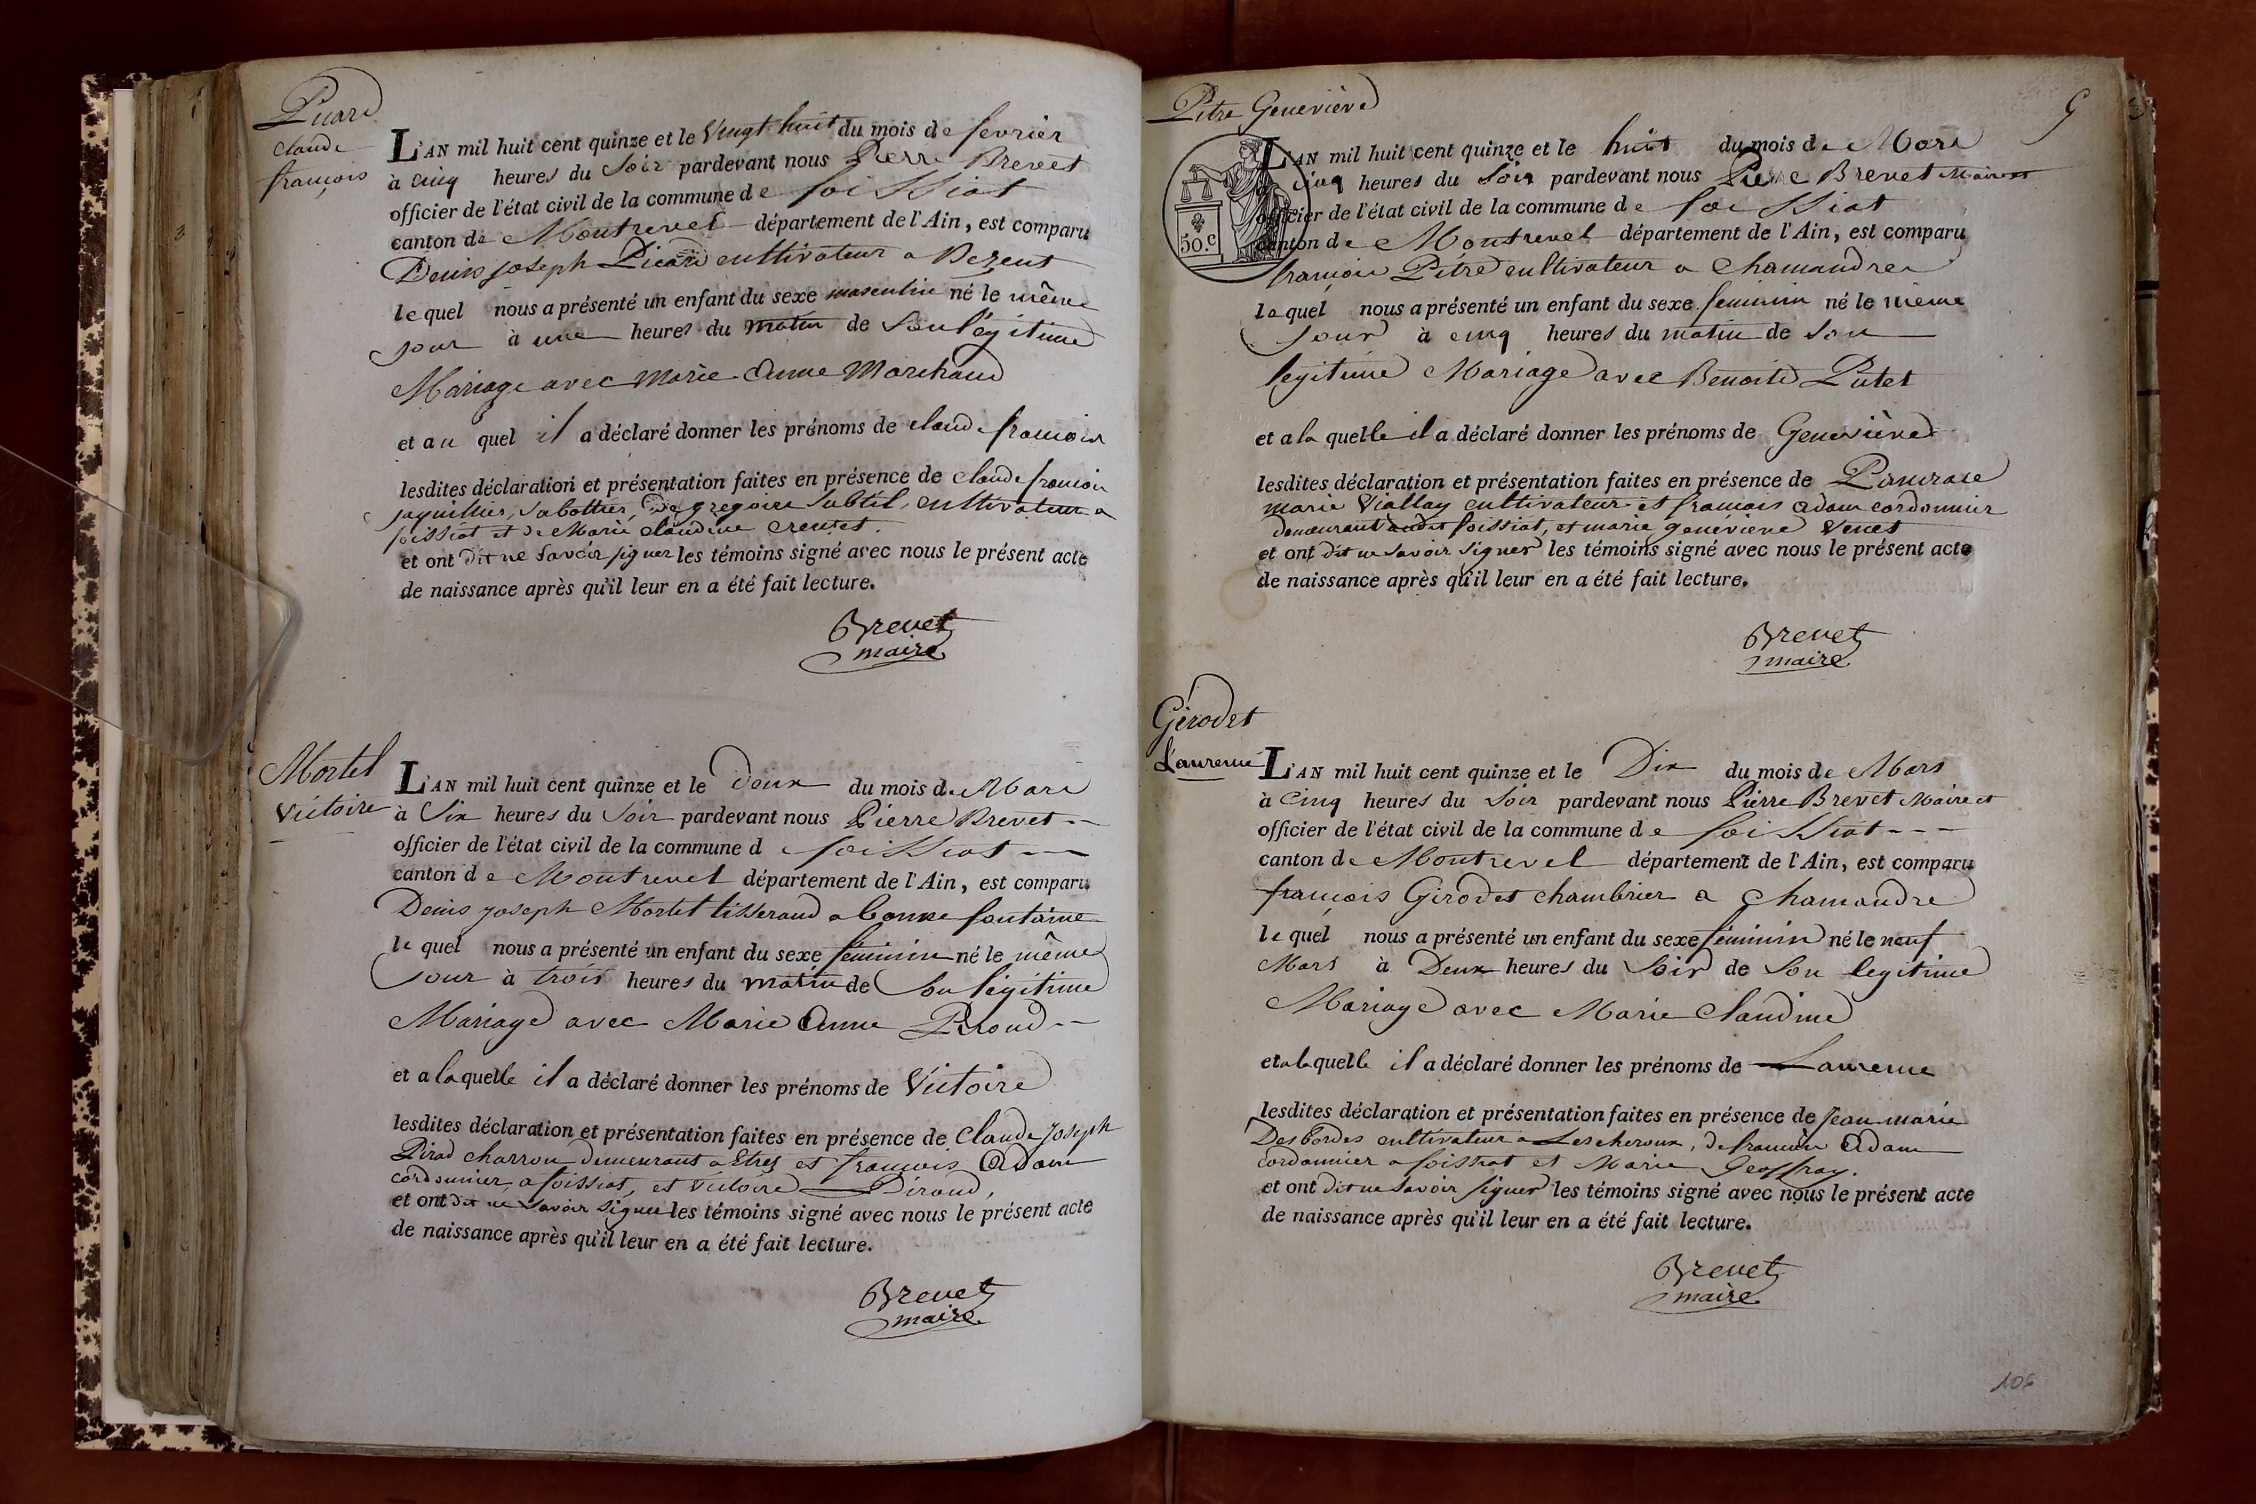 Picard
claude
françois
L'AN mil huit cent quinze et le Vingt huit du mois de fevrier
à cinq heures du Soir pardevant nous Pierre Brevet
officier de l'état civil de la commune de foissiat
canton de Montrevel département de l'Ain, est comparu
Denis joseph Picard cultivateur a Bezent
le quel nous a présenté un enfant du sexe masculin né le même
jour à une heures du matin de Son légitime
Mariage avec Marie Anne Marchand
et au quel il a déclaré donner les prénoms de claude françois
lesdites déclaration et présentation faites en présence de claude françois
jaquillier, Sabottier, de gregoire Subtil, cultivateur a
foissiat et de Marie claudine
et ont dit ne savoir signer les témoins signé avec nous le présent acte
de naissance après qu'il leur en a été fait lecture.
Brevet
maire
Mortel
Victoire
L'AN mil huit cent quinze et le deux du mois de Mars
à Six heures du Soir pardevant nous Pierre Brevet
officier de l'état civil de la commune de foissiat
canton de Montrevel département de l'Ain, est comparu
Denis joseph Mortel tisserand a bonne fontaine
le quel nous a présenté un enfant du sexe féminin né le même
jour à trois heures du matin de Son légitime
Mariage avec Marie Anne Piroud
et a laquelle il a déclaré donner les prénoms de Victoire
lesdites déclaration et présentation faites en présence de Claude Joseph
Pirod charron demeurant a Etrez et françois Adam
cordonnier a foissiat, et victoire Piroud,
et ont dit ne savoir signer les témoins signé avec nous le présent acte
de naissance après qu'il leur en a été fait lecture.
Brevet
maire
Pitre Geneviève
9
50.c
L'AN mil huit cent quinze et le huit du mois de Mars
à cinq heures du Soir pardevant nous Pierre Brevet Maire et
officier de l'état civil de la commune de foissiat
canton de Montrevel département de l'Ain, est comparu
françois Pitre cultivateur a chamandre
le quel nous a présenté un enfant du sexe feminin né le même
jour à cinq heures du matin de son
legitime Mariage avec Benoite Putet
et a la quelle il a déclaré donner les prénoms de Geneviève
lesdites déclaration et présentation faites en présence de Pancrace
marie Viallay cultivateur et françois adam cordonnier
demeurant audit foissiat, et marie geneviève
et ont dit ne savoir signer les témoins signé avec nous le présent acte
de naissance après qu'il leur en a été fait lecture.
Brevet
maire
Girodet
Laurence
L'AN mil huit cent quinze et le Dix du mois de Mars
à cinq heures du Soir pardevant nous Pierre Brevet Maire et
officier de l'état civil de la commune de foissiat
canton de Montrevel département de l'Ain, est comparu
françois Girodet chambrier a chamandre
le quel nous a présenté un enfant du sexe féminin né le neuf
Mars à Deux heures du Soir de Son legitime
Mariage avec Marie Claudine
et a laquelle il a déclaré donner les prénoms de Laurence
lesdites déclaration et présentation faites en présence de Jean marie
Desbordes cultivateur a Lescheroux, de françois Adam
cordonnier a foissiat et Marie Geoffray.
et ont dit ne savoir signer les témoins signé avec nous le présent acte
de naissance après qu'il leur en a été fait lecture.
Brevet
maire